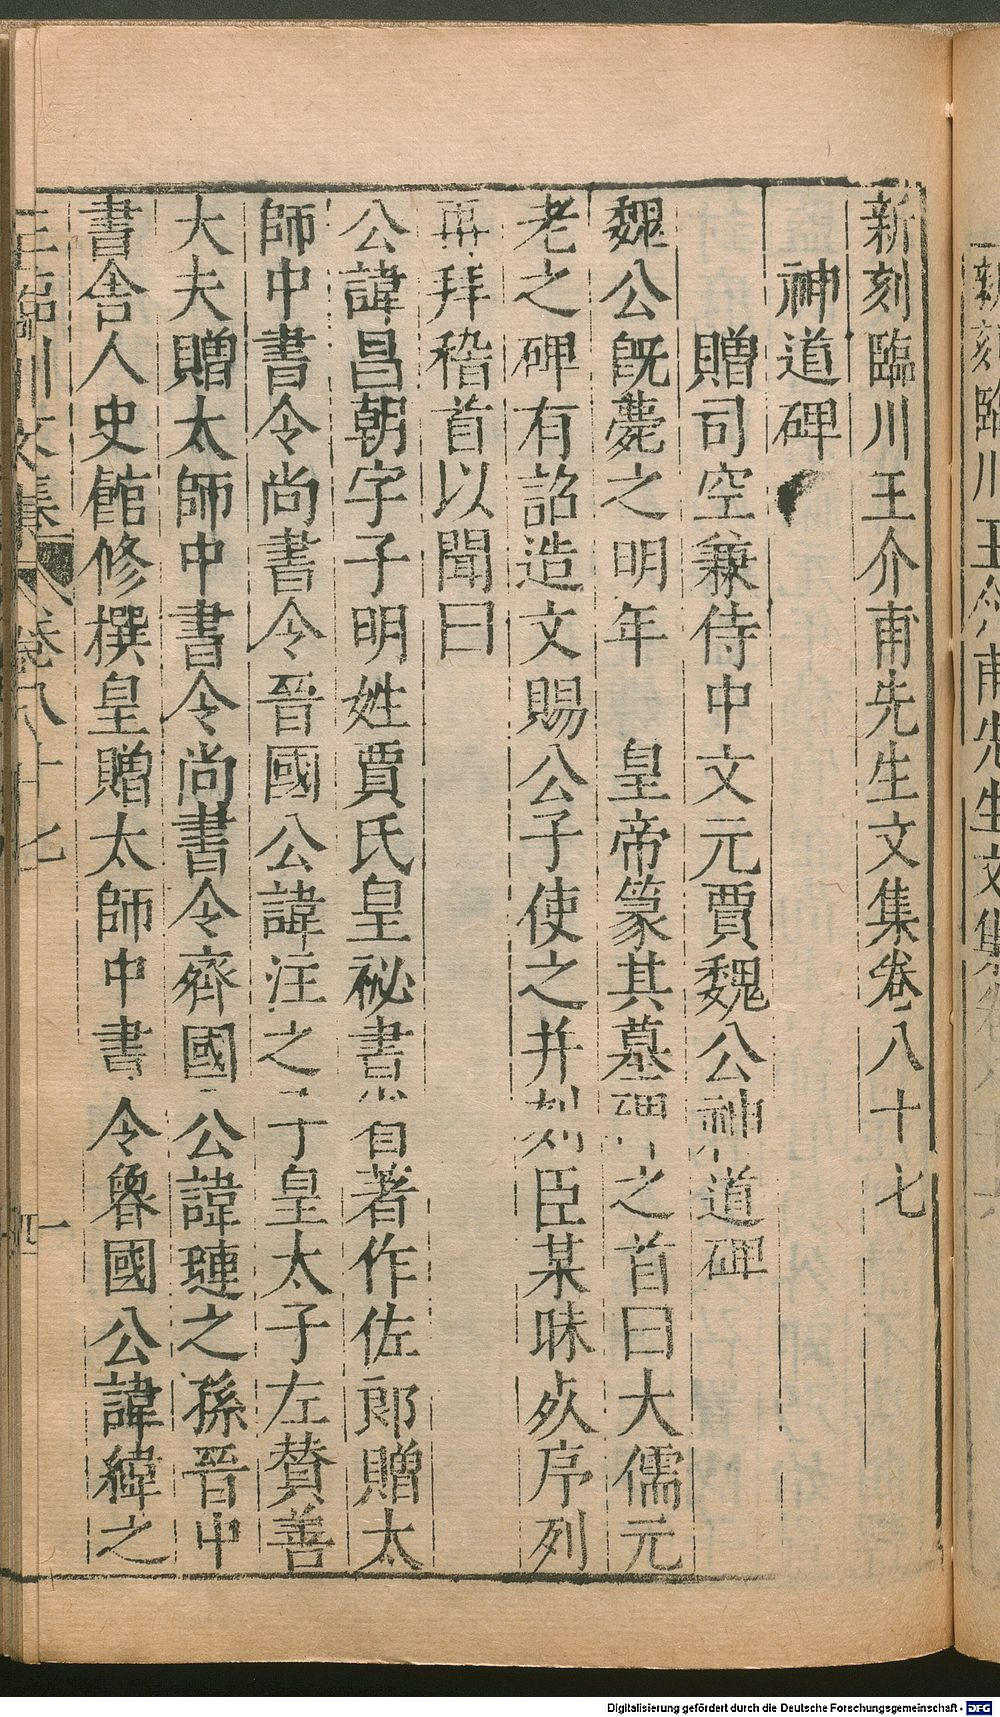 新刻臨川王介甫先生文集卷八十七
神道碑
贈司空兼侍中文元賈魏公神道碑
魏公旣薨之明年 皇帝篆其墓碑之首曰大儒元
老之碑有詔造文賜公子使之并刻臣某昧死序列
再拜稽首以聞曰
公諱昌朝字子明姓賈氏皇祕書省著作佐郎贈太
師中書令尚書令晉國公諱注之子皇太子左贊善
大夫贈太師中書令尚書令齊國公諱璉之孫晉中
書舍人史館修撰皇贈太師中書令魯國公諱緯之
王臨川文集 卷八十七 一
Digitalisierung gefördert durch die Deutsche Forschungsgemeinschaft - DFG